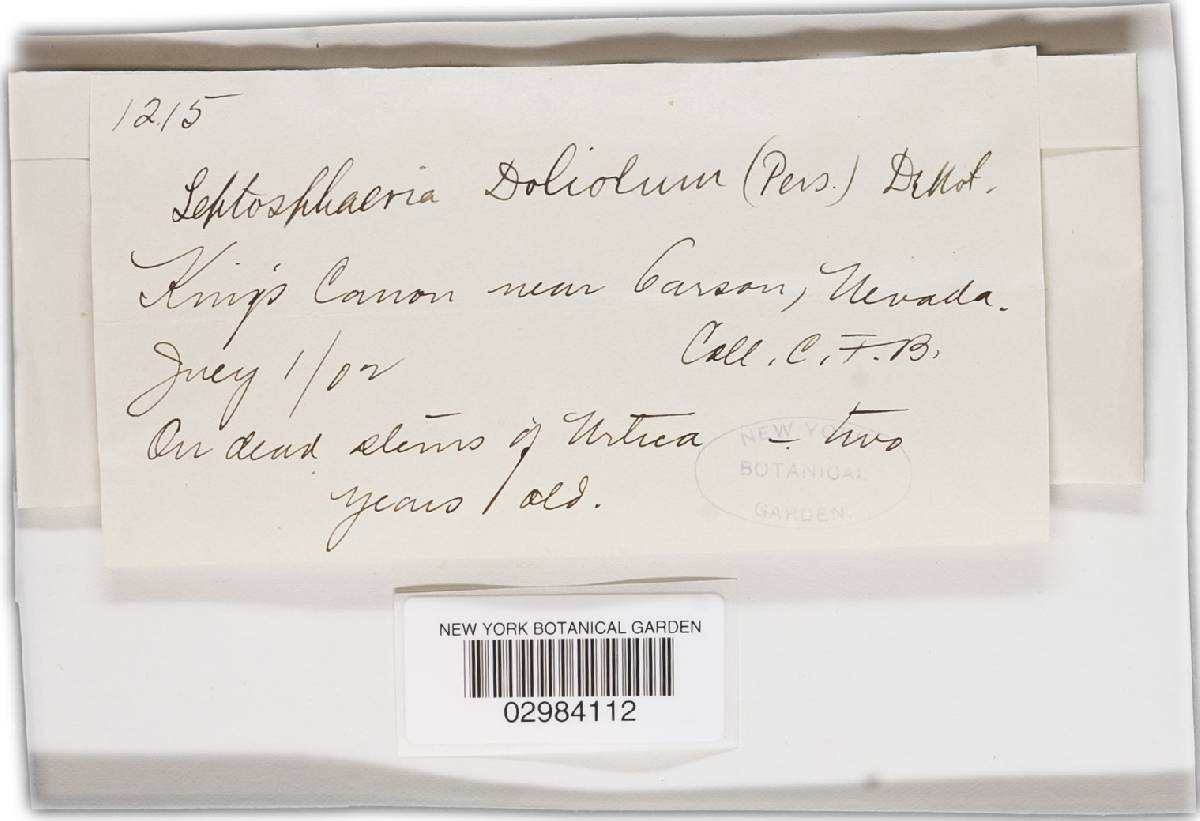 1215
Leptosphaeria Doliolum (Pers.) DeNot.
King's Canon near Carson, Nevada.
July 1/02
Coll. C. F. B.
On dead stems of Urtica - two
years old.
NEW YORK
BOTANICAL
GARDEN
NEW YORK BOTANICAL GARDEN
02984112